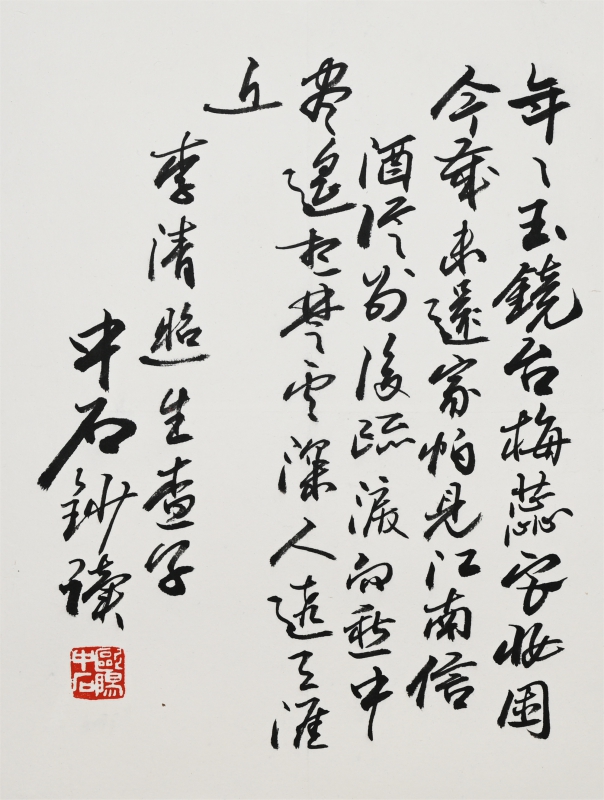 年〻玉鏡台梅蕊宮妝困
今歲未還家怕見江南信
酒從別後疏淚向愁中
盡遙想楚雲深人遠天涯
近
李清照生查子
中石鈔讀
歐陽中石